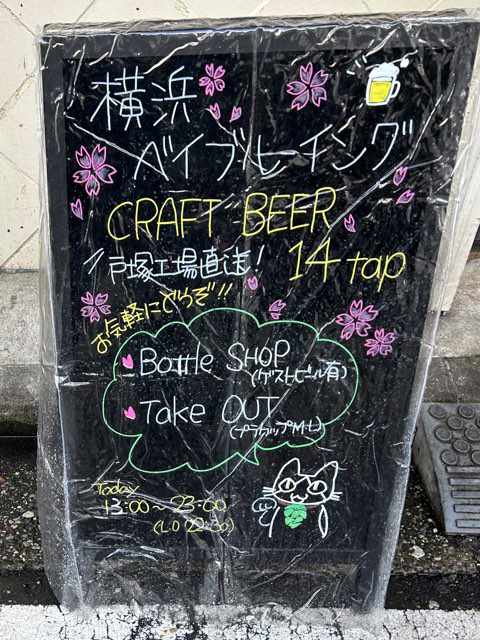 横浜
ベイブルーイング
CRAFT BEER
戸塚工場直送! 14 tap
お気軽にどうぞ!!
Bottle SHOP
(ゲストビール有)
Take OUT
(プラカップM・L)
Today
13:00~23:00
(L.O 22:30)